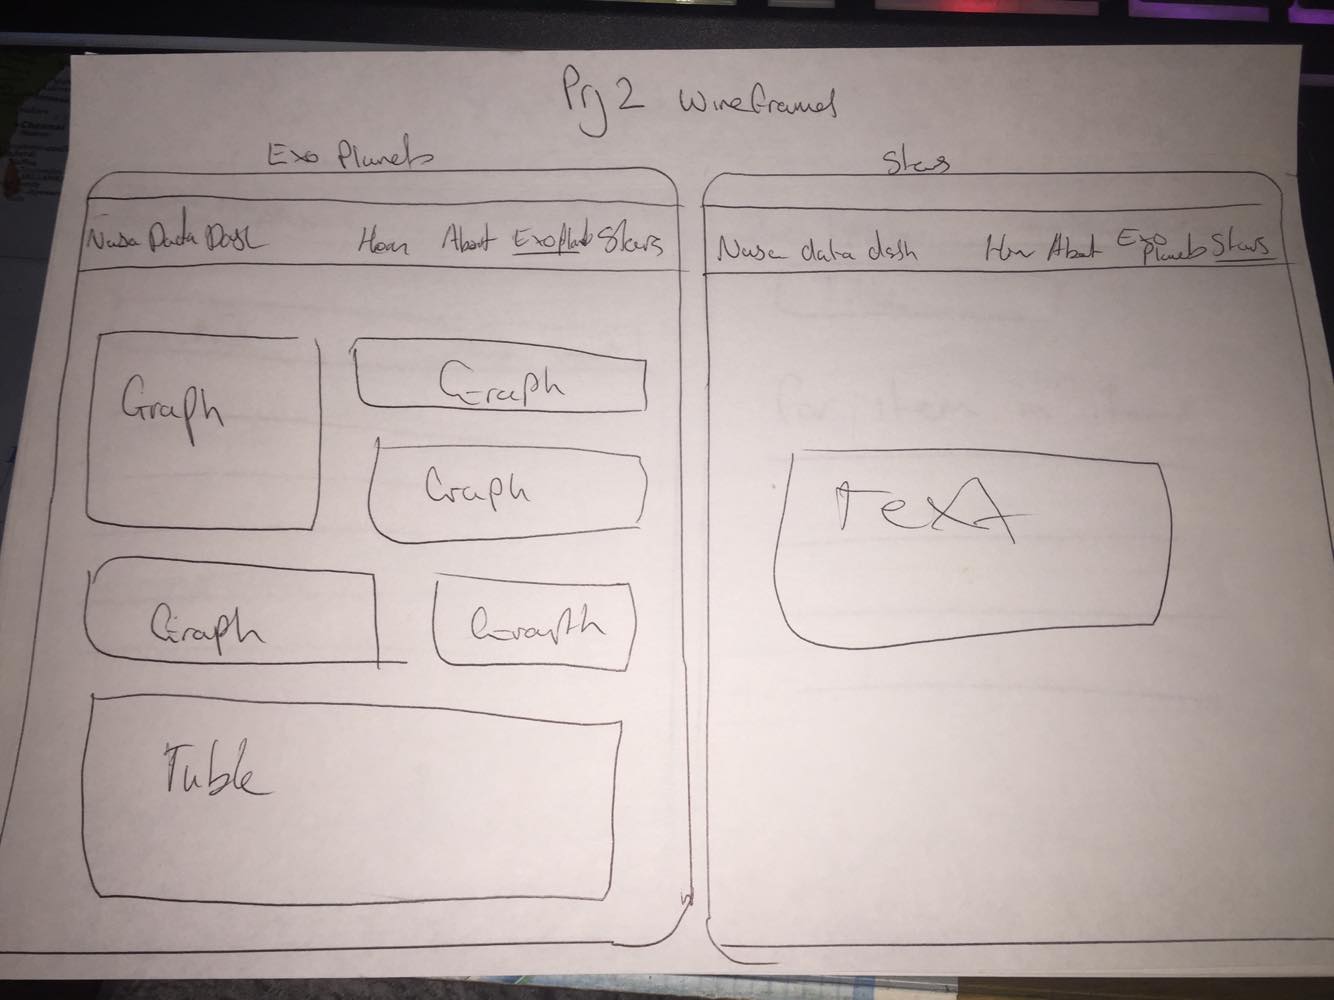 Prj 2 Wireframes
Exo Planets
Nasa Data Dash Hom About Exoplanets Stars
Graph
Graph
Graph
Graph
Graph
Table
Stars
Nasa data dash Hom About Exo Planets Stars
Text